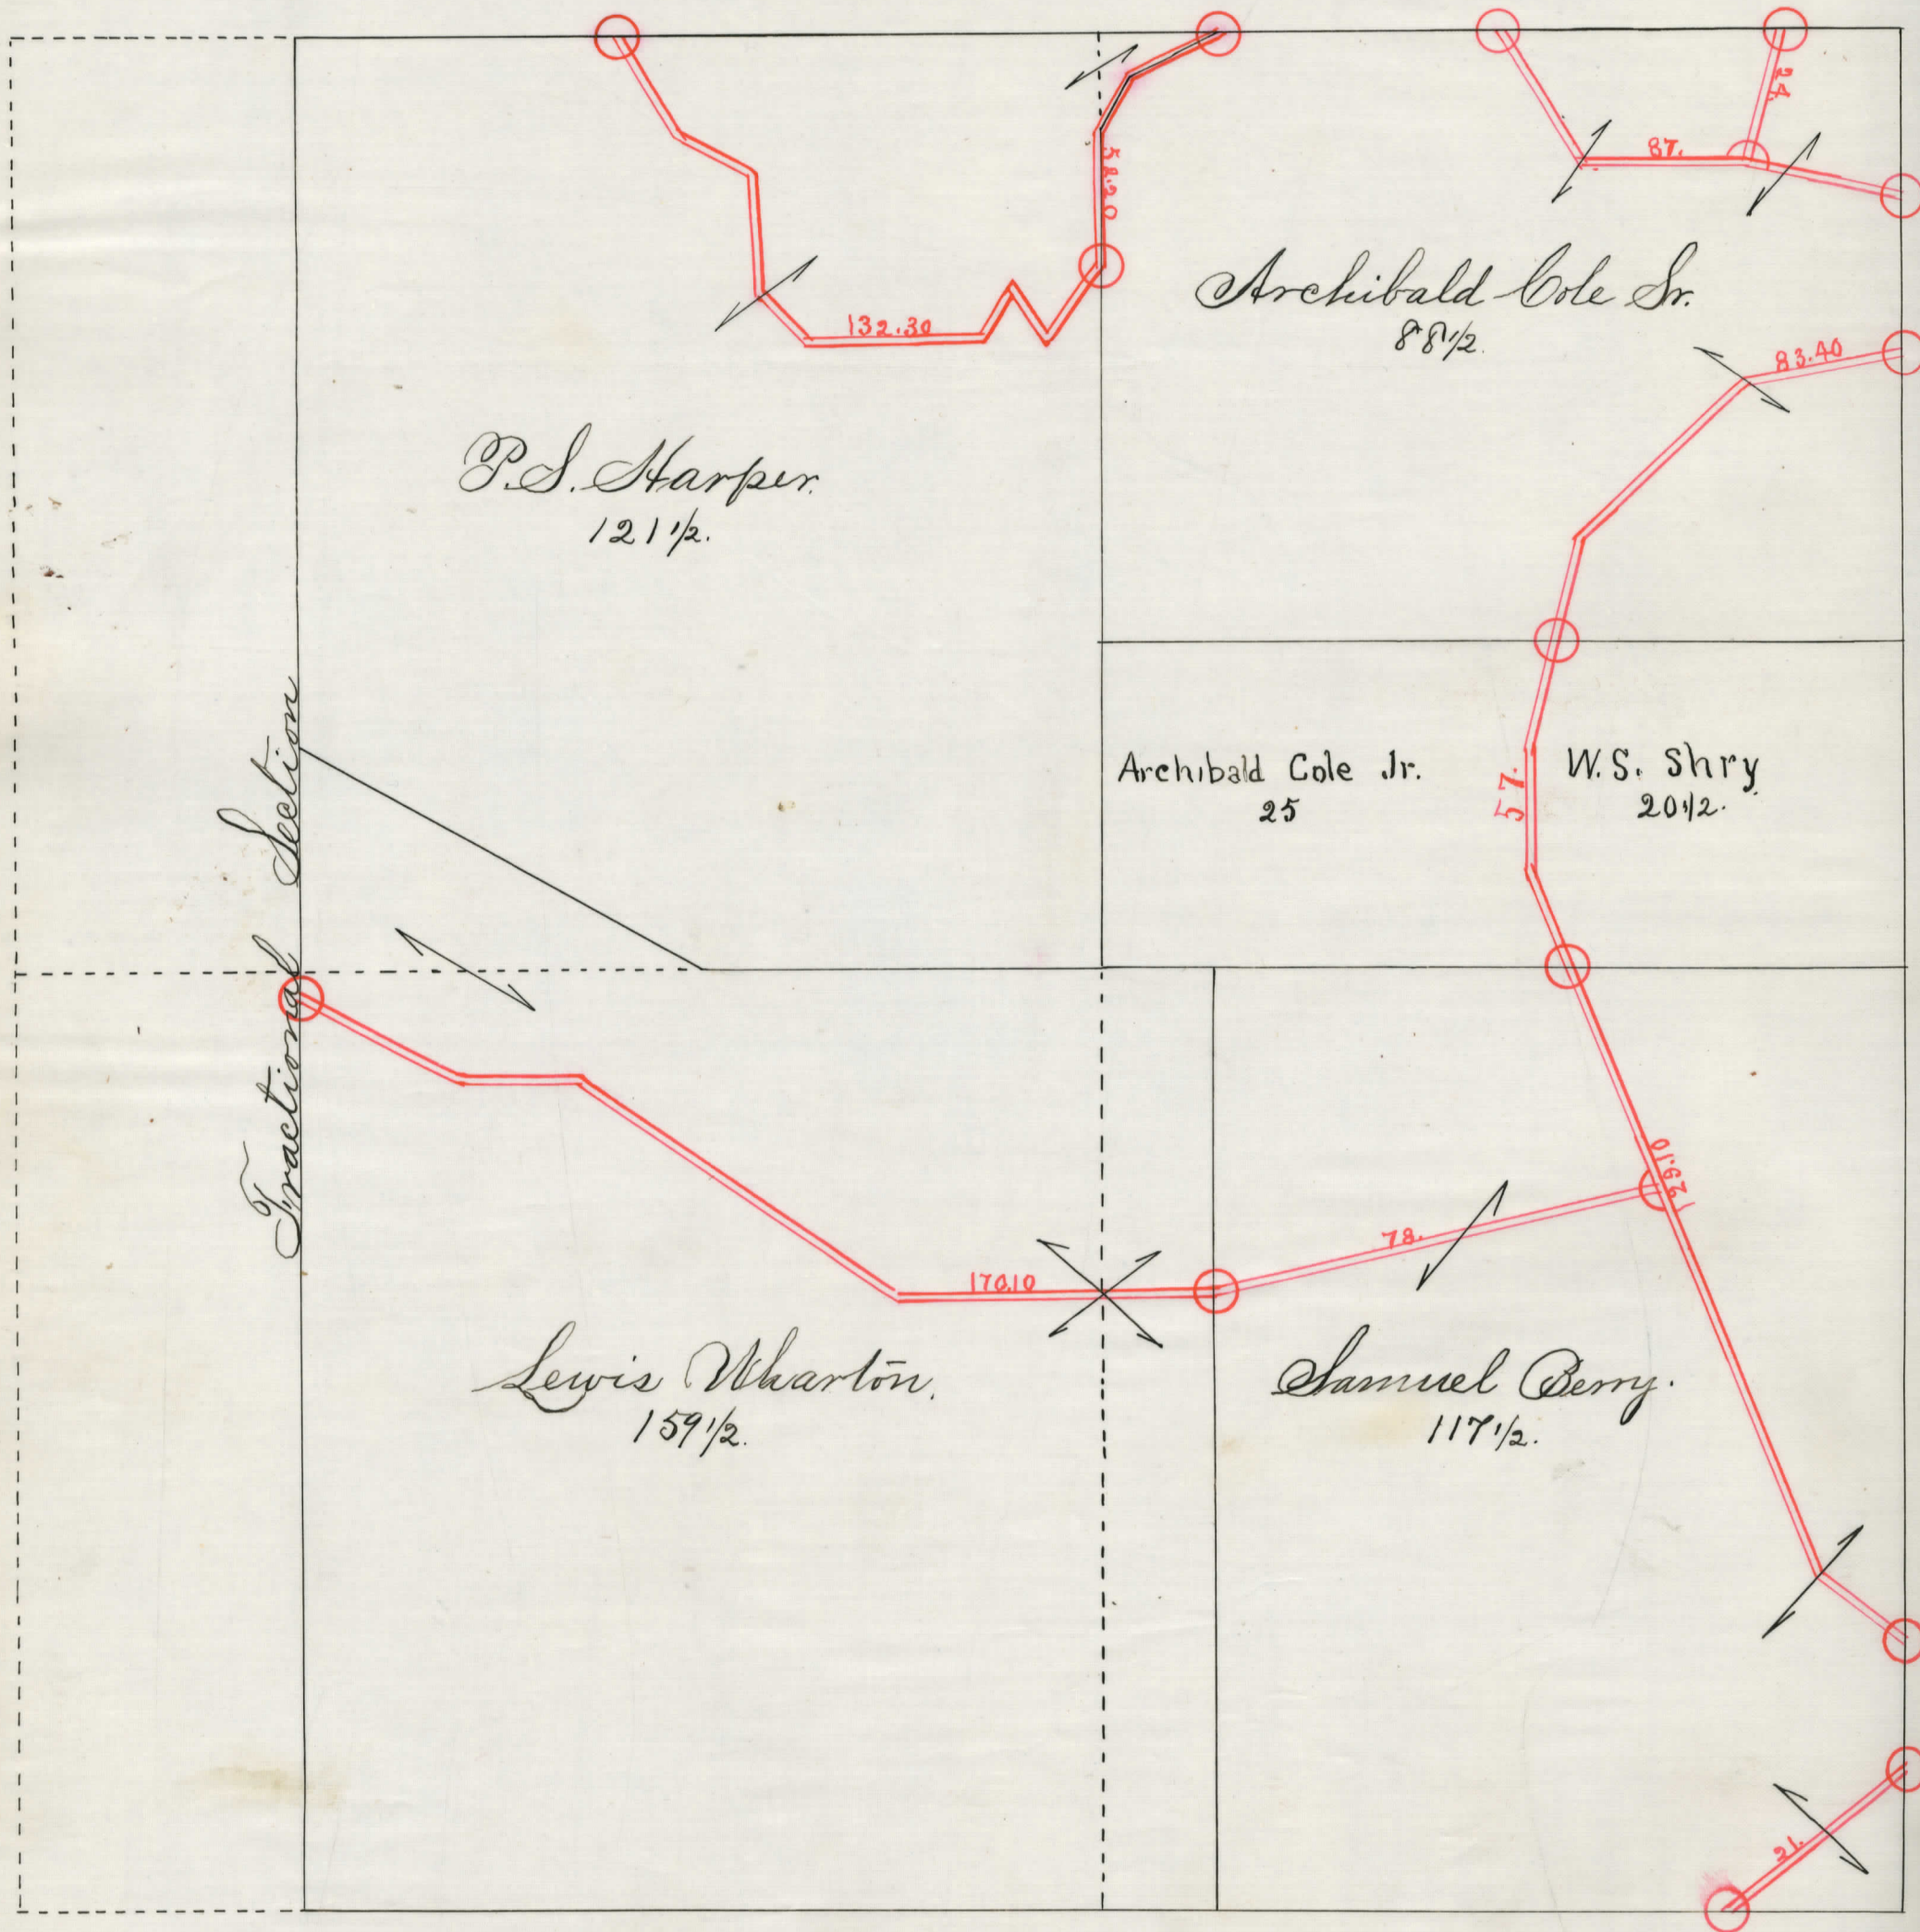 24.
87.
132.30
Archibald Cole Sr.
88 1/2.
83.40
P.S. Harper.
121 1/2.
Fractional Section
Archibald Cole Jr.
25
57.
W.S. Shry
20 1/2.
129.10
78.
170.10
Lewis Wharton.
159 1/2.
Samuel Berry.
117 1/2.
21.